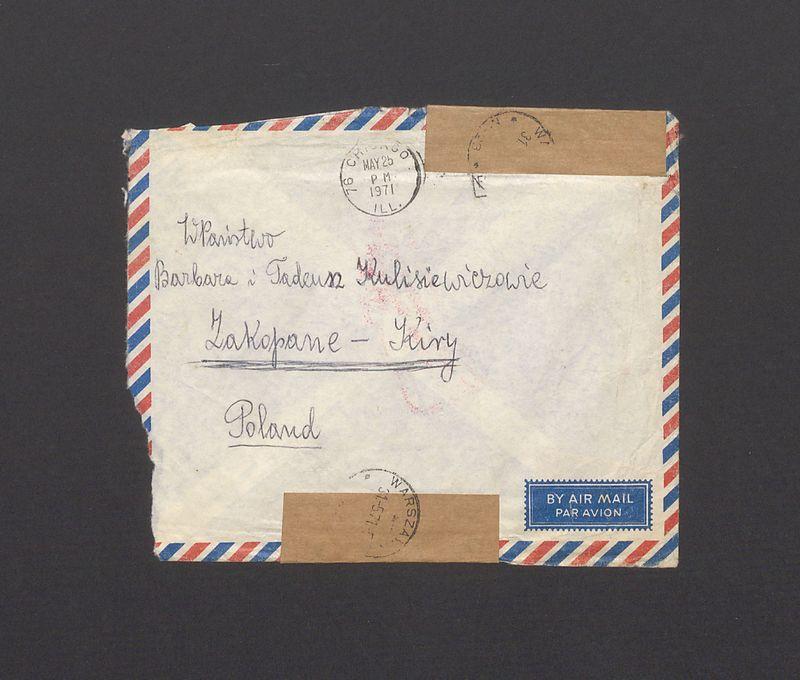 76 CHICAGO
MAY 26
P M
1971
ILL.
31
WPaństwo
Barbara i Tadeusz Kulisiewiczowie
Zakopane – Kiry
Poland
WARSZA
31-5.71
BY AIR MAIL
PAR AVION